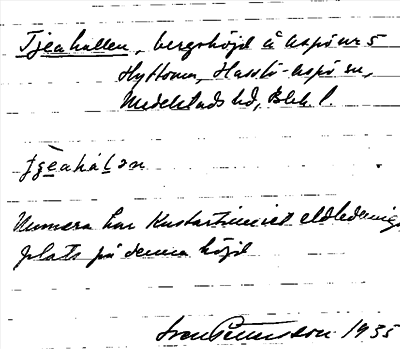 Tjeahallen, bergshöjd å Aspö nr 5
Hyttorna, Hasslö-Aspö sn,
Medelstads hd, Blek. l.
Numera har Kustartilleriet eldlednings
plats på denna höjd
1935